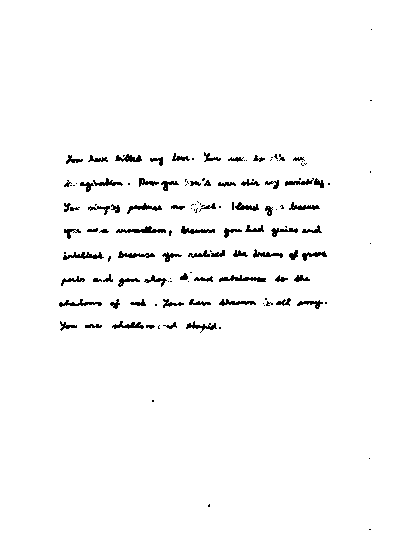 You have killed my love. You used to stir my
imagination. Now you don't even stir my curiosity.
You simply produce no effect. I loved you because
you were marvellous, because you had genius and
intellect, because you realized the dreams of great
poets and gave shape and substance to the
shadows of art. You have thrown it all away.
You are shallow and stupid.